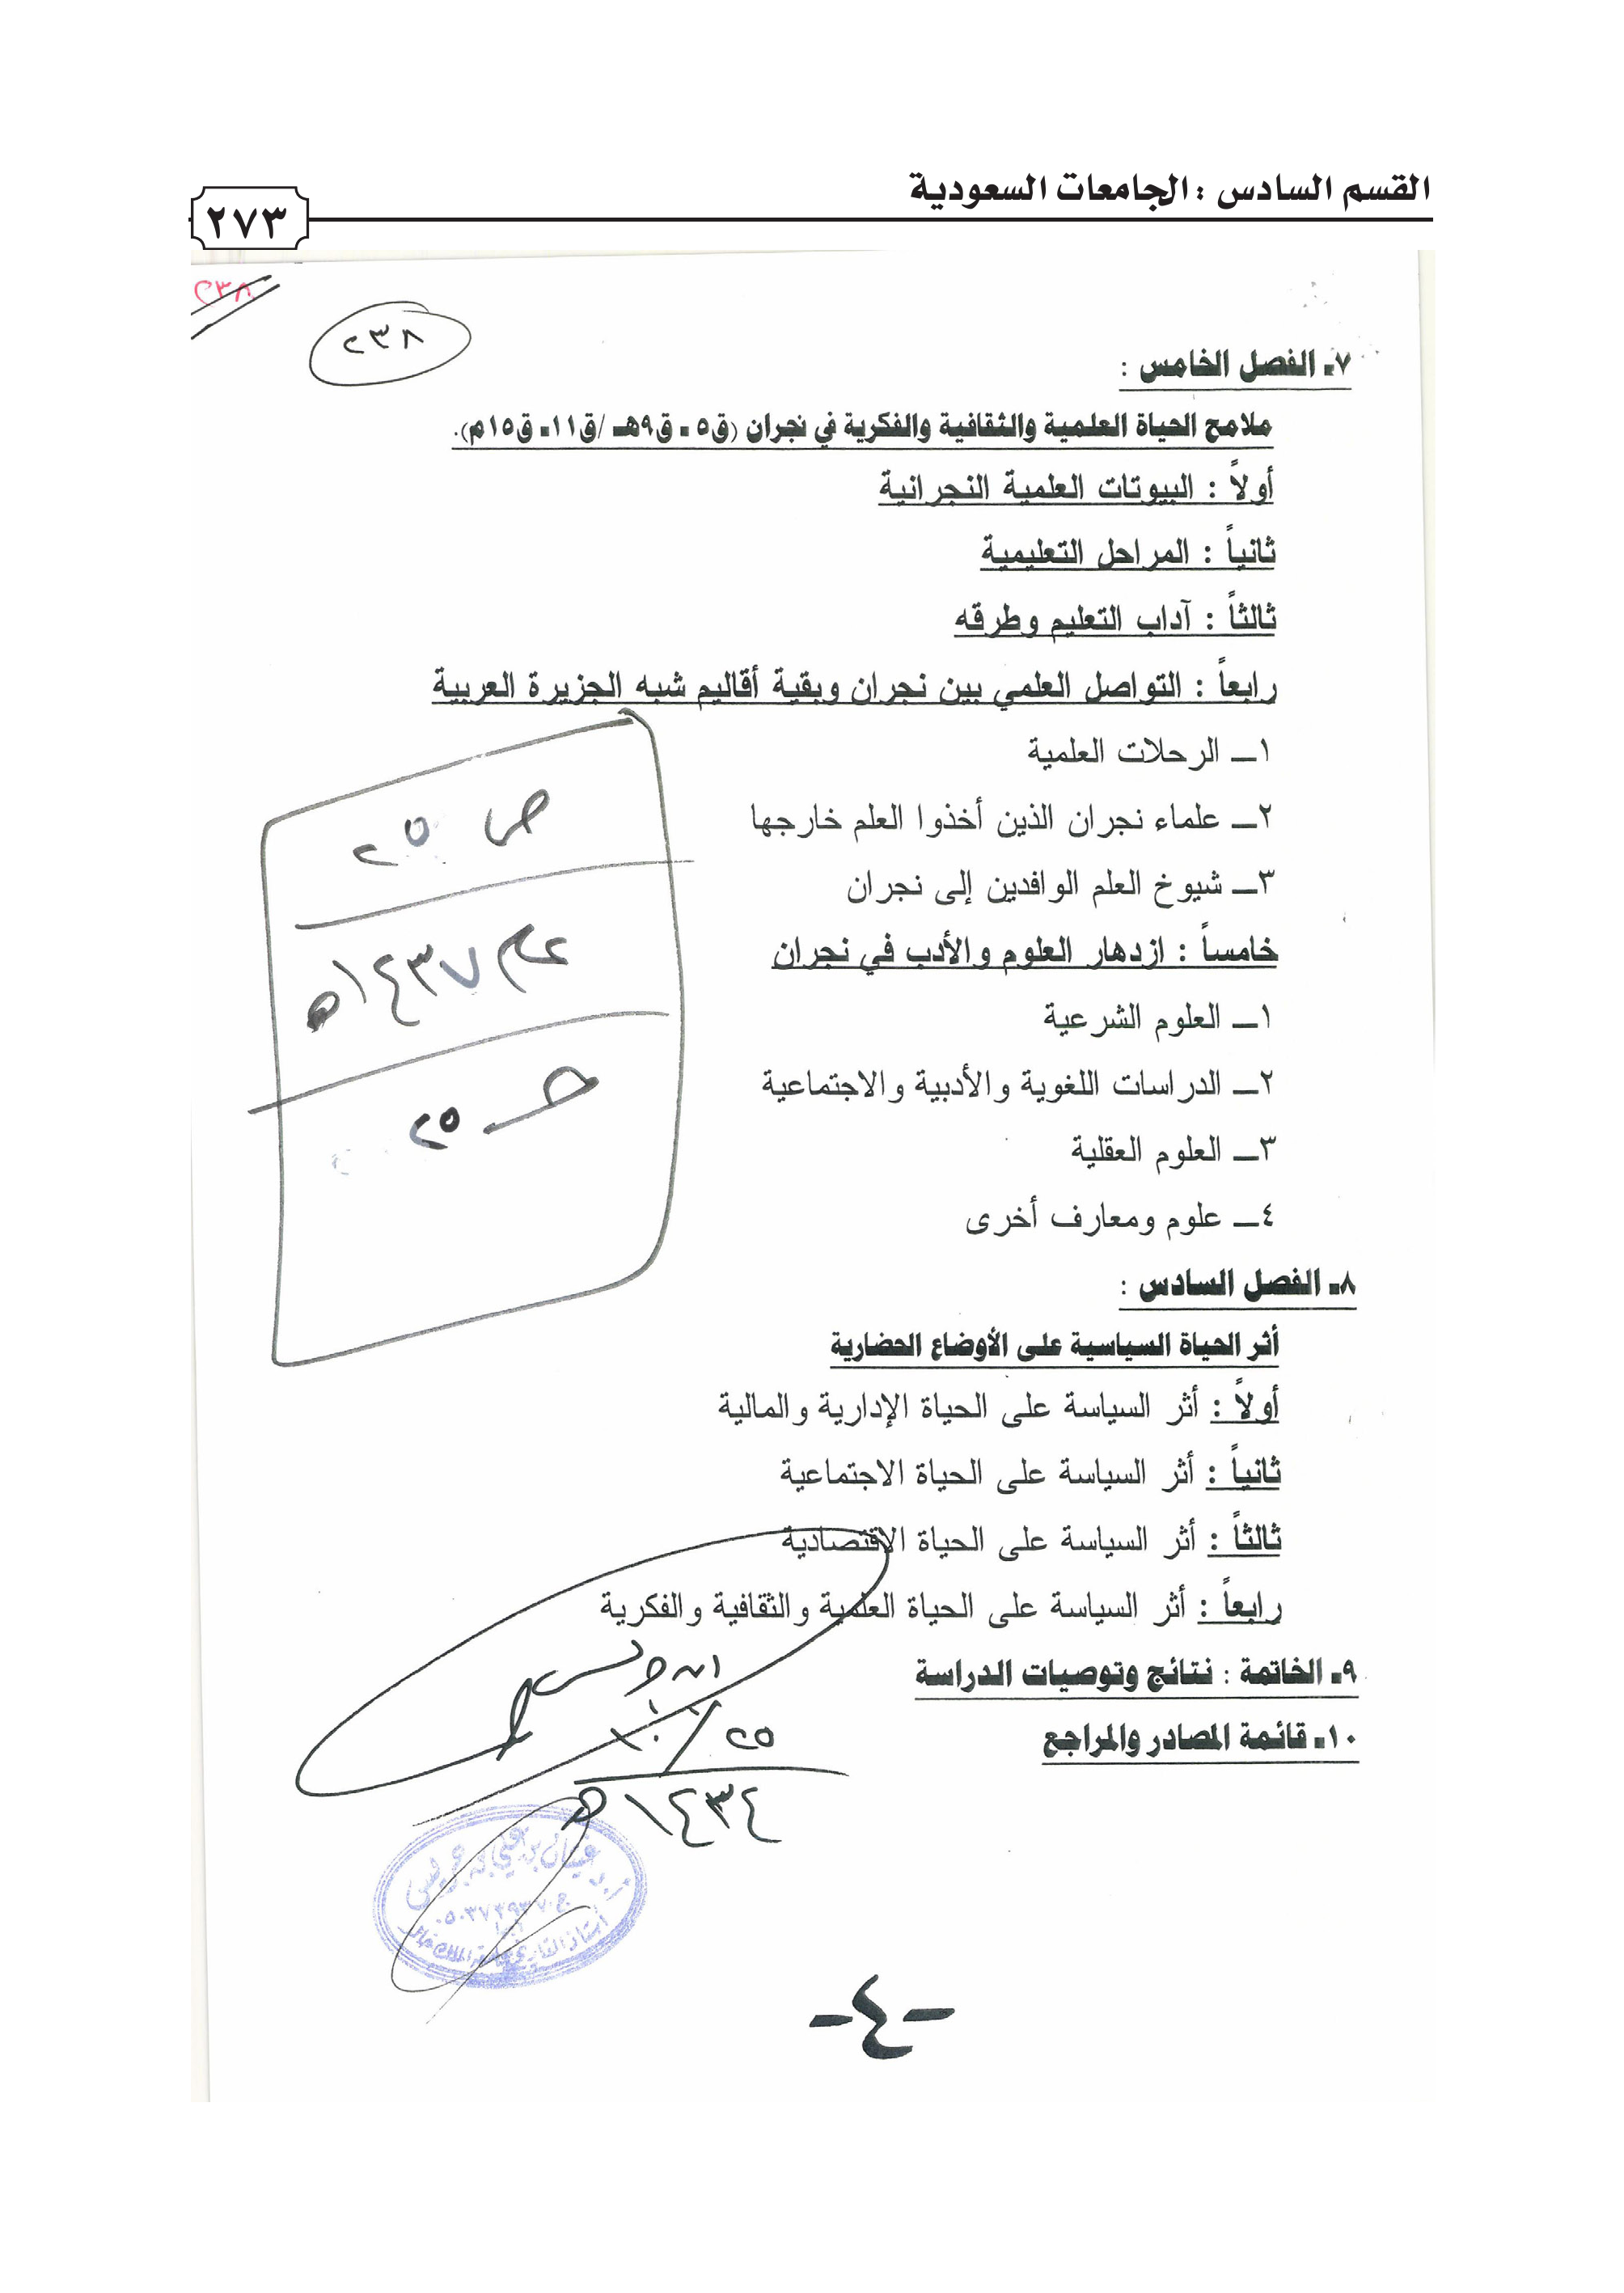 القسم السادس : الجامعات السعودية
٢٧٣
٢٣٨
٢٣٨
٧ـ الفصل الخامس :
ملامح الحياة العلمية والثقافية والفكرية في نجران (ق٥ ـ ق٩هـ /ق١١ـ ق١٥م).
أولاً : البيوتات العلمية النجرانية
ثانياً : المراحل التعليمية
ثالثاً : آداب التعليم وطرقه
رابعاً : التواصل العلمي بين نجران وبقية أقاليم شبه الجزيرة العربية
١ــ الرحلات العلمية
٢ــ علماء نجران الذين أخذوا العلم خارجها
٣ــ شيوخ العلم الوافدين إلى نجران
خامساً : ازدهار العلوم والأدب في نجران
١ــ العلوم الشرعية
٢ــ الدراسات اللغوية والأدبية والاجتماعية
٣ــ العلوم العقلية
٤ــ علوم ومعارف أخرى
ص ٢٥
١٤٣٧هـ
٢٥
٨ـ الفصل السادس :
أثر الحياة السياسية على الأوضاع الحضارية
أولاً : أثر السياسة على الحياة الإدارية والمالية
ثانياً : أثر السياسة على الحياة الاجتماعية
ثالثاً : أثر السياسة على الحياة الاقتصادية
رابعاً : أثر السياسة على الحياة العلمية والثقافية والفكرية
٩ـ الخاتمة : نتائج وتوصيات الدراسة
١٠ـ قائمة المصادر والمراجع
ابن جريس
٢٥/١٠
١٤٣٤هـ
أ.د غيثان بن علي بن جريس
أستاذ التاريخ بجامعة الملك خالد
-٤-